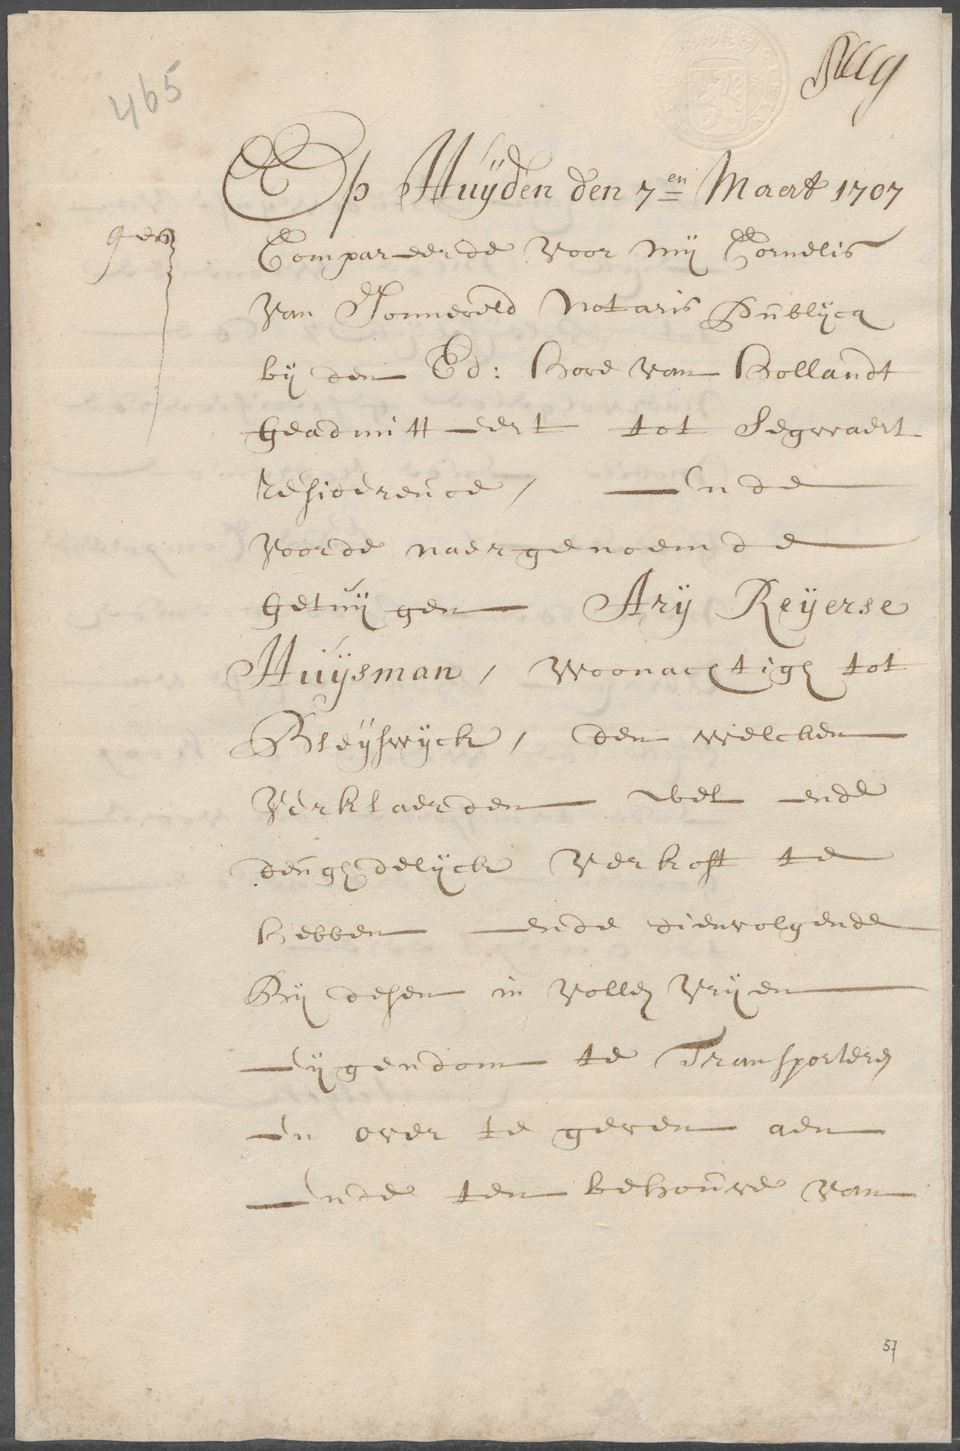 465
Op Huÿden den 7en Maert 1707
Compareerde voor mij Cornelis
van Sonneveld Notaris Publÿcq
bij den Ed: Hove van Hollandt
geadmitteert tot Segwaert
residerence, ende
voorde naergenoemde
getuijgen Arÿ Reÿerse
Huÿsman, woonachtigh tot
Bleÿswÿck, den welcken
verklaerden wel ende
deughdelÿck verkoft te
hebben ende dienvolgende
Bij desen in vollen vrijen
eijgendom te Transporteren
en over te geven aen
ende ten behouve van
57